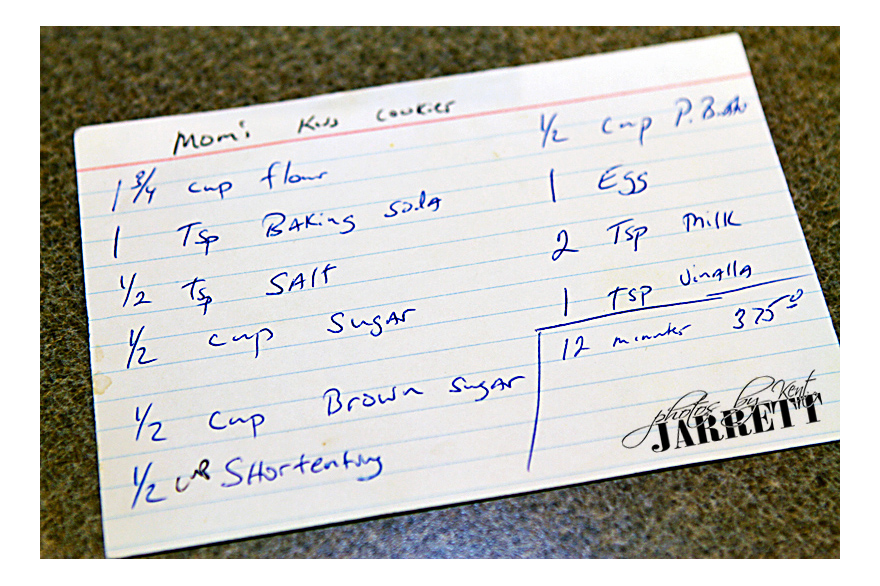 Mom's Kiss Cookies
1 3/4 cup flour
1 Tsp BAKing Soda
1/2 Tsp SAlt
1/2 cup Sugar
1/2 cup Brown Sugar
1/2 cup SHortening
1/2 cup P. Butter
1 Egg
2 Tsp Milk
1 Tsp Vinalla
12 minutes 375°
photos by Kent
JARRETT